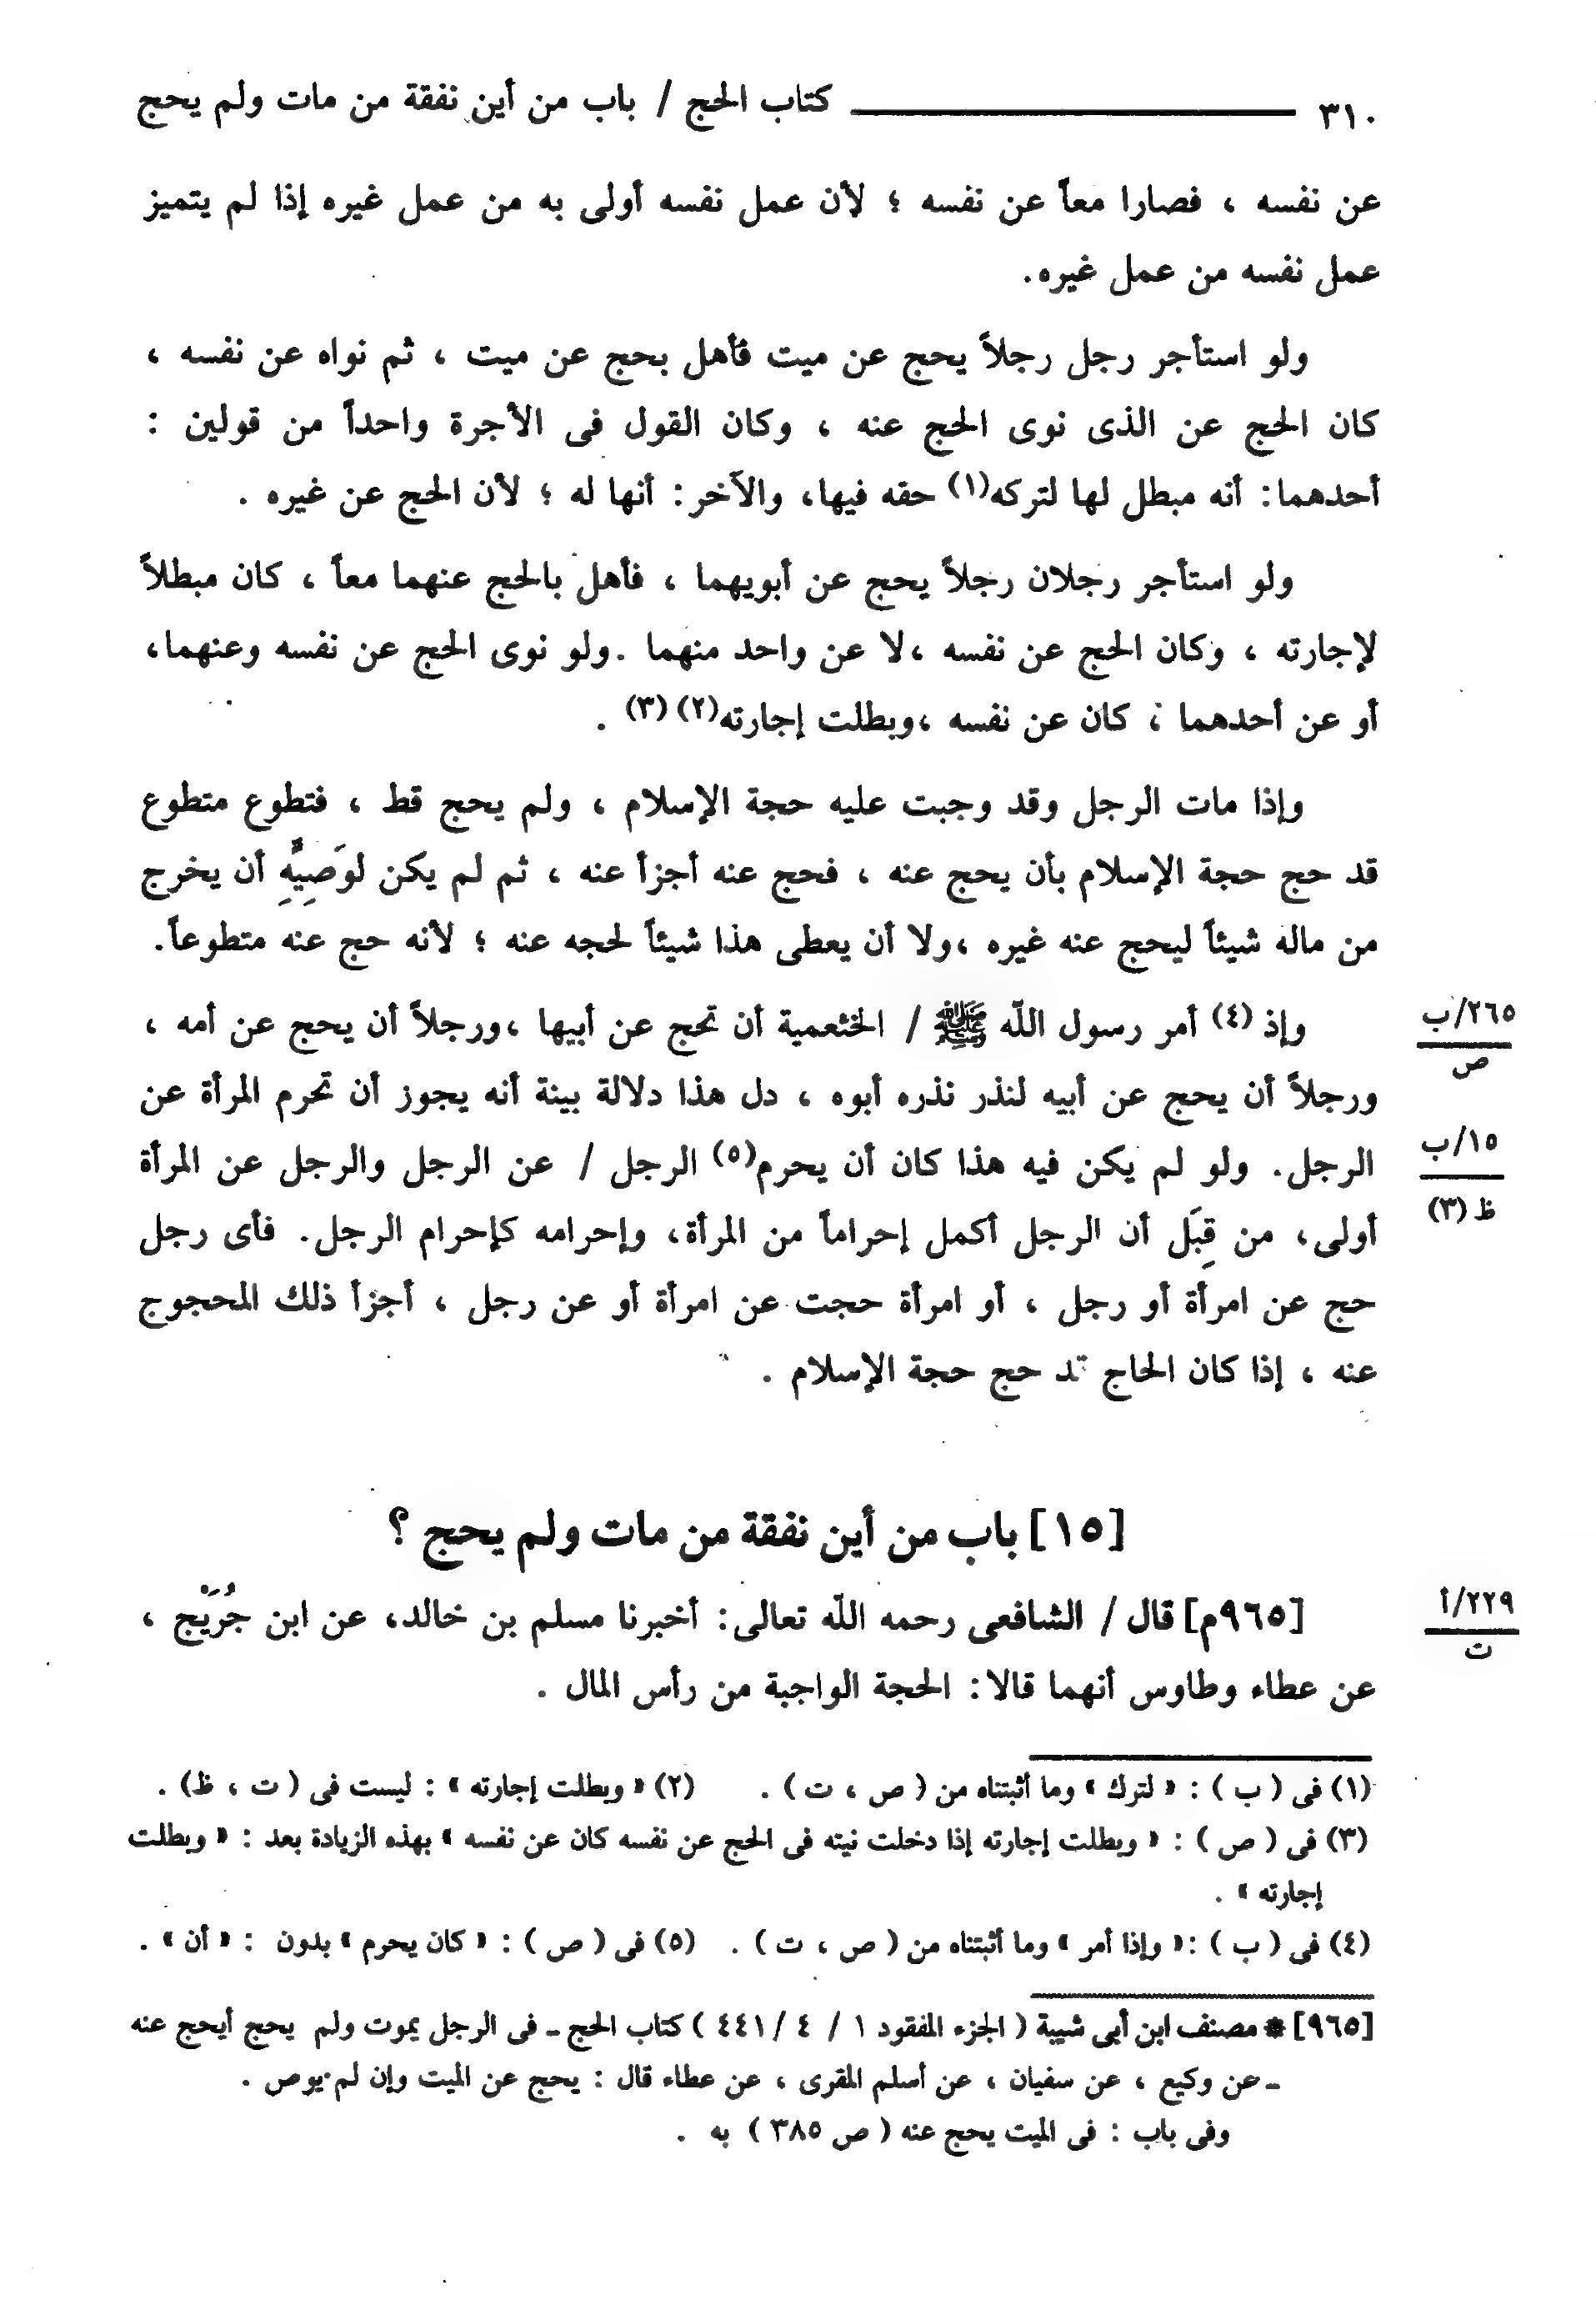 ٣١٠ كتاب الحج / باب من أين نفقة من مات ولم يحج
عن نفسه ، فصارا معاً عن نفسه ؛ لأن عمل نفسه أولى به من عمل غيره إذا لم يتميز
عمل نفسه من عمل غيره.
ولو استأجر رجل رجلاً يحج عن ميت فأهل بحج عن ميت ، ثم نواه عن نفسه ،
كان الحج عن الذى نوى الحج عنه ، وكان القول فى الأجرة واحداً من قولين :
أحدهما: أنه مبطل لها لتركه(١) حقه فيها، والآخر: أنها له ؛ لأن الحج عن غيره .
ولو استأجر رجلان رجلاً يحج عن أبويهما ، فأهل بالحج عنهما معاً ، كان مبطلاً
لإجارته ، وكان الحج عن نفسه ،لا عن واحد منهما .ولو نوى الحج عن نفسه وعنهما،
أو عن أحدهما ، كان عن نفسه ،وبطلت إجارته(٢) (٣) .
وإذا مات الرجل وقد وجبت عليه حجة الإسلام ، ولم يحج قط ، فتطوع متطوع
قد حج حجة الإسلام بأن يحج عنه ، فحج عنه أجزأ عنه ، ثم لم يكن لوَصِيِّهِ أن يخرج
من ماله شيئاً ليحج عنه غيره ،ولا أن يعطى هذا شيئاً لحجه عنه ؛ لأنه حج عنه متطوعاً.
وإذ (٤) أمر رسول اللّه ﷺ / الخثعمية أن تحج عن أبيها ،ورجلاً أن يحج عن أمه ،
٢٦٥/ب
ص
ورجلاً أن يحج عن أبيه لنذر نذره أبوه ، دل هذا دلالة بينة أنه يجوز أن تحرم المرأة عن
الرجل. ولو لم يكن فيه هذا كان أن يحرم(٥) الرجل / عن الرجل والرجل عن المرأة
١٥/ب
ظ (٣)
أولى، من قِبَل أن الرجل أكمل إحراماً من المرأة، وإحرامه كإحرام الرجل. فأى رجل
حج عن امرأة أو رجل ، أو امرأة حجت عن امرأة أو عن رجل ، أجزأ ذلك المحجوج
عنه ، إذا كان الحاج قد حج حجة الإسلام .
[١٥] باب من أين نفقة من مات ولم يحج ؟
[٩٦٥م] قال / الشافعى رحمه اللّه تعالى: أخبرنا مسلم بن خالد، عن ابن جُرَيْج ،
٢٢٩/أ
ت
عن عطاء وطاوس أنهما قالا: الحجة الواجبة من رأس المال .
(١) فى ( ب ) : « لترك » وما أثبتناه من ( ص ، ت ) . (٢) « وبطلت إجارته » : ليست فى ( ت ، ظ) .
(٣) فى ( ص ) : « وبطلت إجارته إذا دخلت نيته فى الحج عن نفسه كان عن نفسه » بهذه الزيادة بعد : « وبطلت
إجارته » .
(٤) فى ( ب ) :« وإذا أمر » وما أثبتناه من ( ص ، ت ) . (٥) فى ( ص ) : « كان يحرم » بدون : « أن » .
[٩٦٥] * مصنف ابن أبى شيبة ( الجزء المفقود ١ / ٤ / ٤٤١ ) كتاب الحج ـ فى الرجل يموت ولم يحج أيحج عنه
ـ عن وكيع ، عن سفيان ، عن أسلم المقرى ، عن عطاء قال : يحج عن الميت وإن لم يوص .
وفى باب : فى الميت يحج عنه ( ص ٣٨٥ ) به .